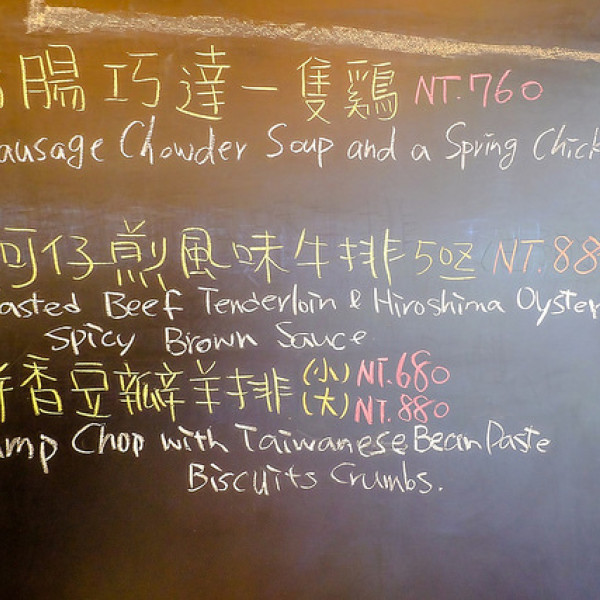 腸巧達一隻鷄 NT.760
ausage Chowder Soup and a Spring Chick
蚵仔煎風味牛排5oz NT.88
asted Beef Tenderloin & Hiroshima Oyster
Spicy Brown Sauce
香豆瓣羊排 (小) NT.680
(大) NT.880
amp Chop with Taiwanese Bean Paste
Biscuits Crumbs.